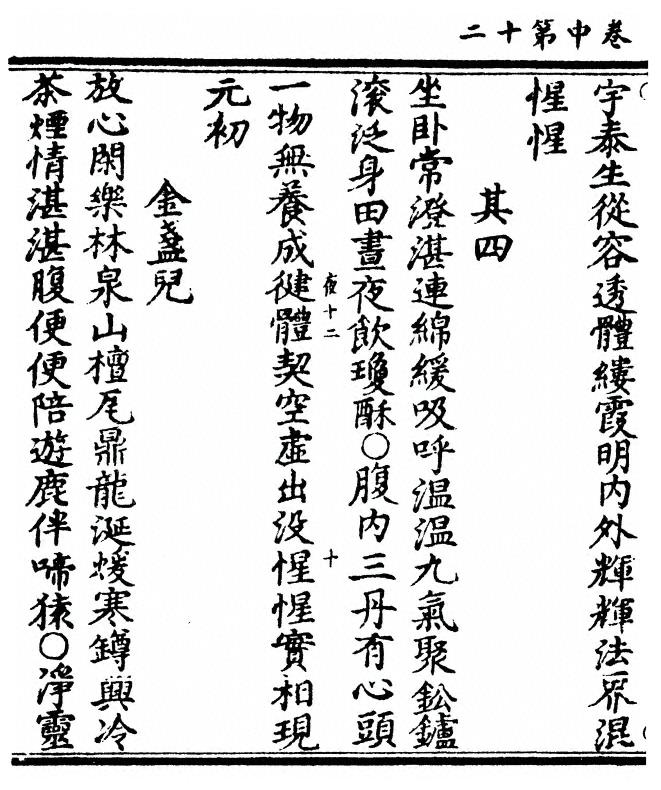 卷中第十二
宇泰生從容透體縷霞明內外輝輝法界混
惺惺
其四
坐卧常澄湛連綿緩吸呼溫溫九氣聚鈆鑪
滚泛身田晝夜飲瓊酥〇腹內三丹有心頭
夜十二
十
一物無養成健體契空虛出没惺惺實相現
元初
金盞兒
放心閑樂林泉山檀瓦鼎龍涎煖寒鐏興冷
茶煙情湛湛腹便便陪遊鹿伴啼猿〇淨靈